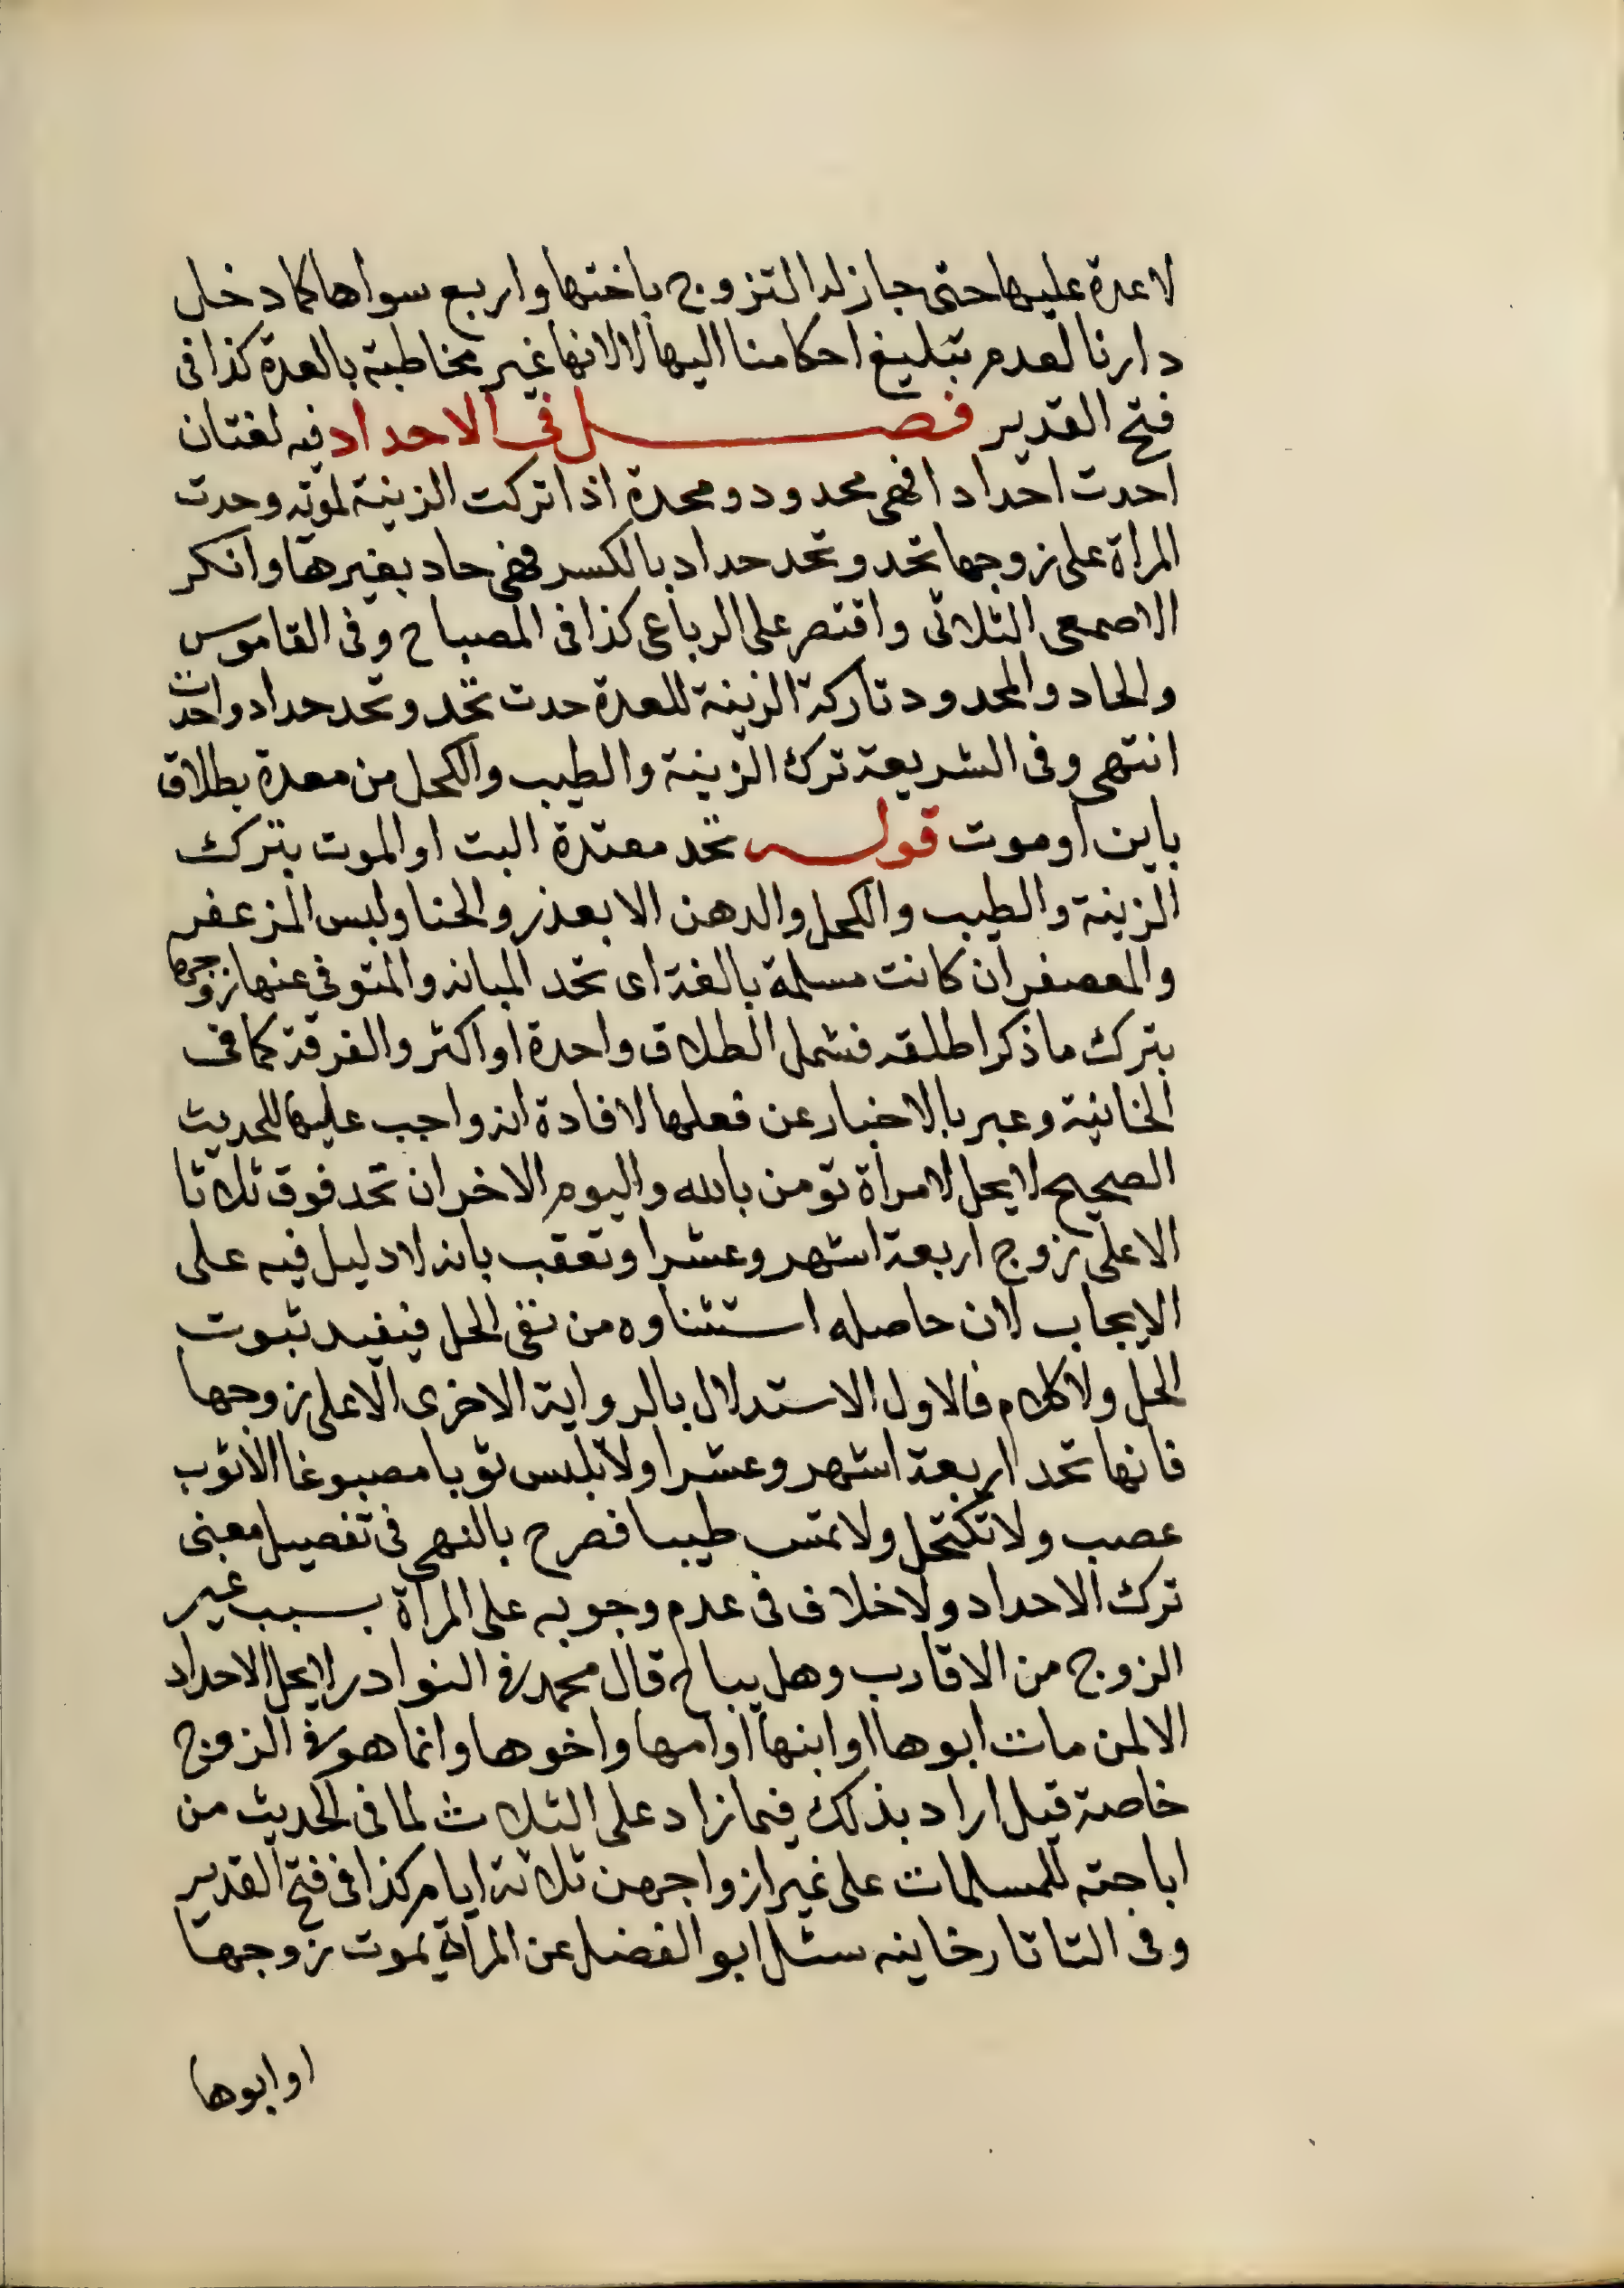 لا عدة عليها حتى جاز له التزوج باختها واربع سواها كما دخل
دارنا لعدم تبليغ احكامنا اليها لا لانها غير مخاطبة بالعدة كذا فى
فتح القدير فصل فى الاحداد فيه لغتان
احدت احدادا فهى محدود ومحدة اذا تركت الزينة لموته وحدت
المراة على زوجها تحد وتحد حداد بالكسر فهى حاد بغيرها وانكر
الاصمعى الثلاثى واقتصر على الرباعى كذا فى المصباح وفى القاموس
والحاد والمحدود تاركة الزينة للعدة حدت تحد وتحد حداد واحدت
انتهى وفى الشريعة ترك الزينة والطيب والكحل من معدة بطلاق
باين او موت قوله تحد معتدة البت او الموت بترك
الزينة والطيب والكحل والدهن الا بعذر والحنا ولبس المزعفر
والمعصفر ان كانت مسلمة بالغة اى تحد المبانه والمتوفى عنها زوجها
بترك ما ذكر اطلقه فشمل الطلاق واحدة او اكثر والفرقة كما فى
الخانية وعبر بالاخبار عن فعلها لافادة انه واجب عليها للحديث
الصحيح لا يحل لامراة تومن بالله واليوم الاخر ان تحد فوق ثلاثا
الا على زوج اربعة اشهر وعشرا وتعقب بانه لا دليل فيه على
الايجاب لان حاصله استثناوه من نفى الحل فيفيد ثبوت
الحل ولا كلام فالاول الاستدلال بالرواية الاخرى الا على زوجها
فانها تحد اربعة اشهر وعشرا ولا تلبس ثوبا مصبوغا الا ثوب
عصب ولا تكتحل ولا تمس طيبا فصرح بالنهى فى تفصيل معنى
ترك الاحداد ولا خلاف فى عدم وجوبه على المراة بسبب غير
الزوج من الاقارب وهل يباح قال محمد فى النوادر لا يحل الاحداد
الا لمن مات ابوها او ابنها او امها واخوها وانما هو فى الزوج
خاصة قيل اراد بذلك فيما زاد على الثلاث لما فى الحديث من
اباحته للمسلمات على غير ازواجهن ثلاثة ايام كذا فى فتح القدير
وفى التاتارخانيه سئل ابو الفضل عن المراة يموت زوجها
او ابوها